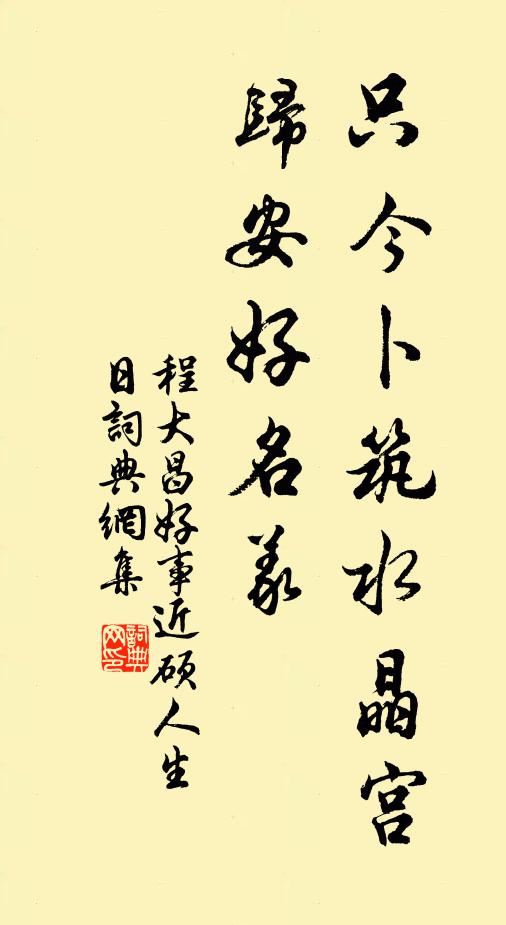 只今卜筑水晶宫
歸安好名義
程大昌好事近硕人生
日詞典網集
詞典网印